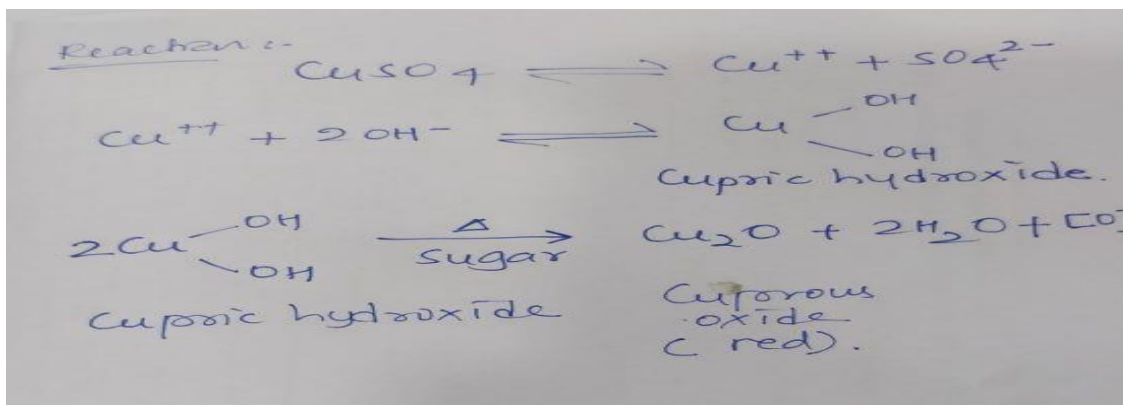 Reaction :-
CuSO4 ⇌ Cu++ + SO4^2-
Cu++ + 2OH- ⇌ Cu OH OH
Cupric hydroxide.
2Cu OH OH Δ sugar → Cu2O + 2H2O + [O]
Cupric hydroxide Cuprous oxide (red).